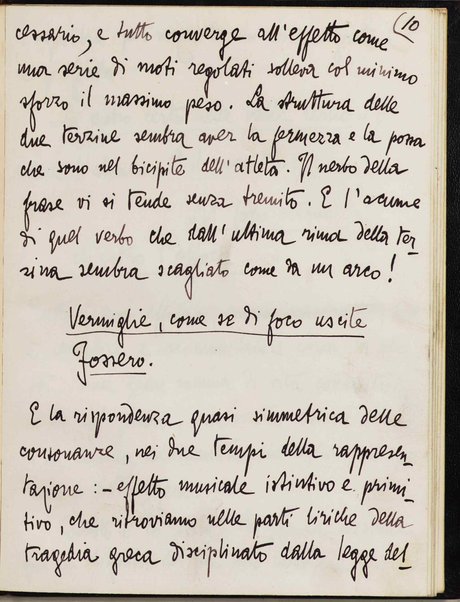 (10
cessario, e tutto converge all'effetto come
una serie di moti regolati solleva col minimo
sforzo il massimo peso. La struttura delle
due terzine sembra aver la fermezza e la possa
che sono nel bicipite dell'atleta. Il nerbo della
frase vi si tende senza tremito. E l'acume
di quel verbo che dall'ultima rima della ter-
zina sembra scagliato come da un arco!
Vermiglie, come se di foco uscite
Fossero.
E la rispondenza quasi simmetrica delle
consonanze, nei due tempi della rappresen-
tazione: – effetto musicale istintivo e primi-
tivo, che ritroviamo nelle parti liriche della
tragedia greca disciplinato dalla legge del-